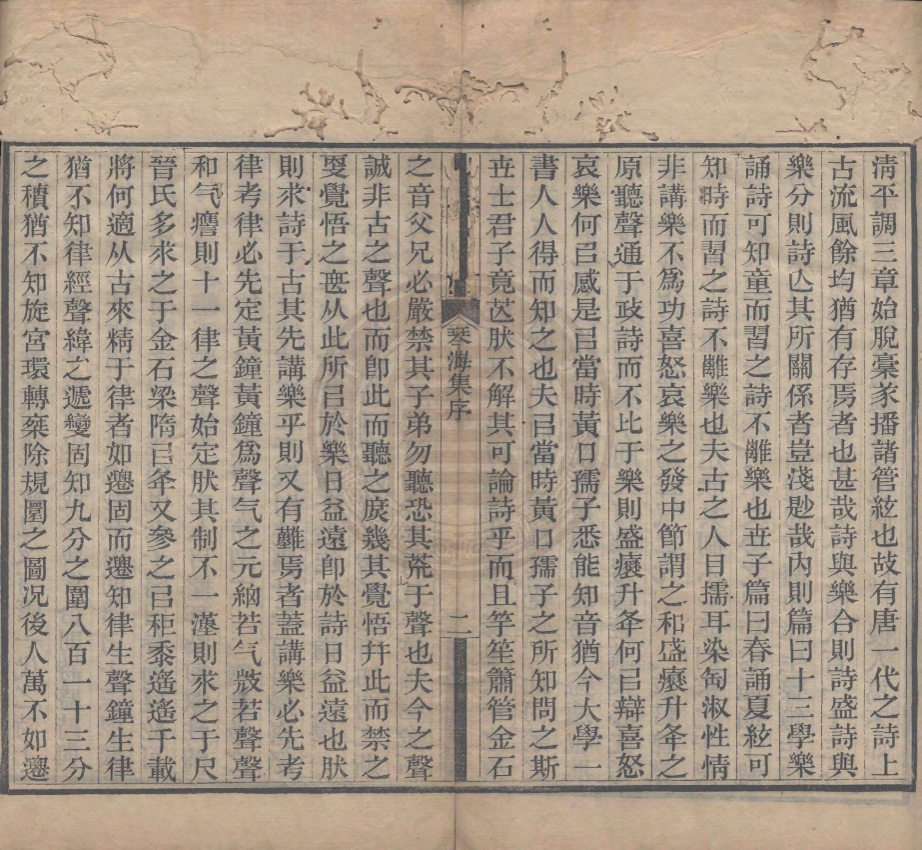 清平調三章始脫稾家播諸管絃也故有唐一代之詩上
古流風餘均猶有存焉者也甚哉詩與樂合則詩盛詩與
樂分則詩亾其所關係者豈淺尠哉內則篇曰十三學樂
誦詩可知童而習之詩不離樂也丗子篇曰春誦夏絃可
知時而習之詩不離樂也夫古之人目擩耳染匋淑性情
非講樂不爲功喜怒哀樂之發中節謂之和盛瘱升夅之
原聽聲通于政詩而不比于樂則盛瘱升夅何㠯辯喜怒
哀樂何㠯感是㠯當時黃口孺子悉能知音猶今大學一
書人人得而知之也夫㠯當時黃口孺子之所知問之斯
丗士君子竟茫肰不解其可論詩乎而且竽笙簫管金石
琴海集序
二
之音父兄必嚴禁其子弟勿聽恐其荒于聲也夫今之聲
誠非古之聲也而卽此而聽之庶幾其覺悟幷此而禁之
覺悟之無从此所㠯於樂日益遠卽於詩日益遠也肰
則求詩于古其先講樂乎則又有難焉者蓋講樂必先考
律考律必先定黃鐘黃鐘爲聲气之元絪若气㱿若聲聲
和气應則十一律之聲始定肰其制不一漢則求之于尺
晉氏多求之于金石梁隋㠯夅又參之㠯秬黍遙遙千載
將何適从古來精于律者如遷固而遷知律生聲鐘生律
猶不知律經聲緯之遞變固知九分之圍八百一十三分
之積猶不知旋宮環轉棄除規圜之圖況後人萬不如遷